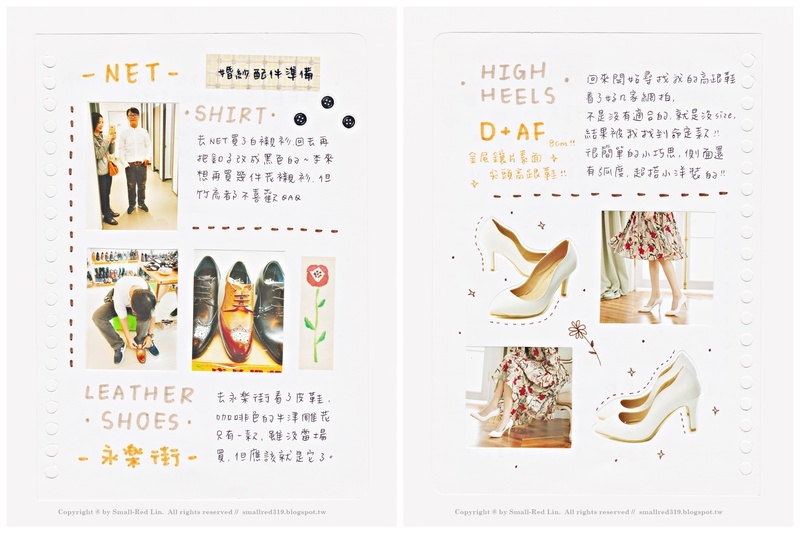 - NET -
婚紗配件準備
· SHIRT ·
去NET買了白襯衫回去再
把釦子改成黑色的~李來
想再買幾件花襯衫,但
竹高都不喜歡QAQ
LEATHER
· SHOES ·
- 永樂街 -
去永樂街看了皮鞋,
咖啡色的牛津雕花
只有一款,雖沒當場
買,但應該就是它了。
Copyright ® by Small-Red Lin. All rights reserved // smallred319.blogspot.tw
· HIGH ·
HEELS
D+AF
8cm!!
金屬鑲片素面
尖頭高跟鞋!!
回來開始尋找我的高跟鞋
看了好幾家網拍,
不是沒有適合的,就是沒size,
結果被我找到命定款!!
很簡單的小巧思,側面還
有弧度,超搭小洋裝的!!
Copyright ® by Small-Red Lin. All rights reserved // smallred319.blogspot.tw